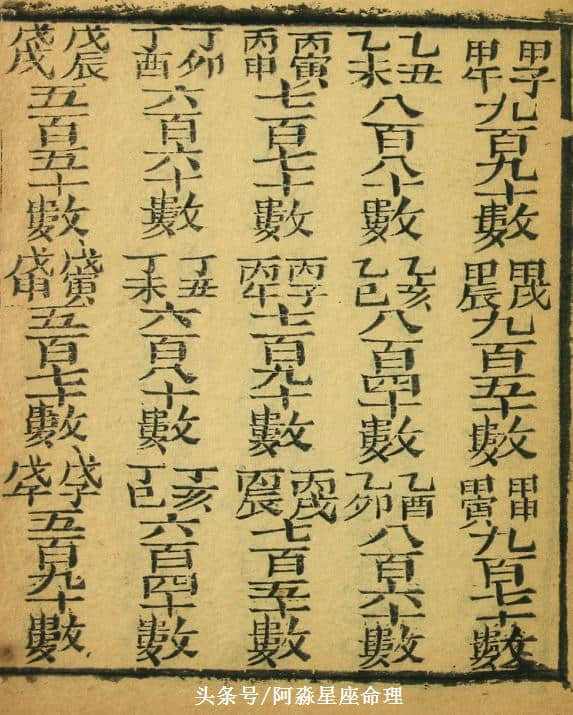 甲子甲午九百九十數甲戌甲辰九百五十數甲申甲寅九百七十數
乙丑乙未八百八十數乙亥乙巳八百四十數乙酉乙卯八百六十數
丙寅丙申七百七十數丙子丙午七百九十數丙戌丙辰七百五十數
丁卯丁酉六百六十數丁丑丁未六百八十數丁亥丁巳六百四十數
戊辰戊戌五百五十數戊寅戊申五百七十數戊子戊午五百九十數
头条号/阿淼星座命理